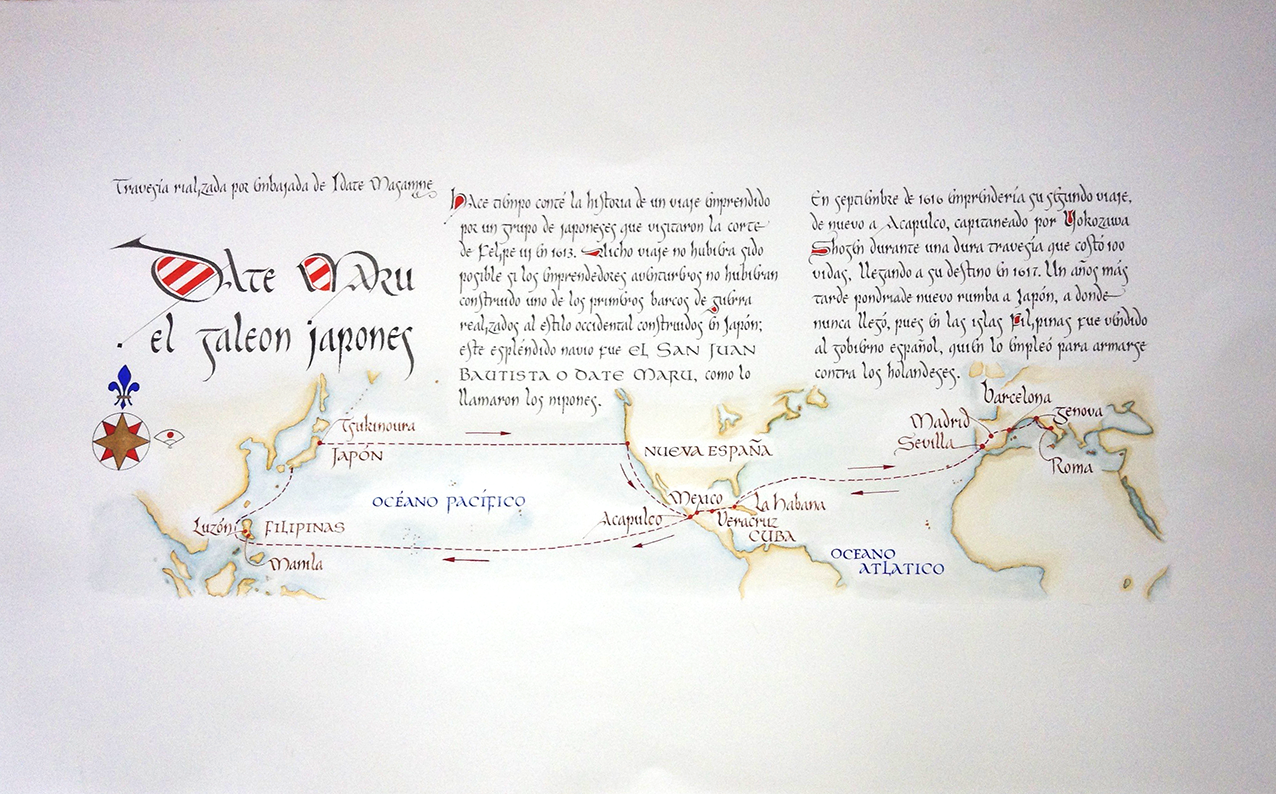 Travesía rializada por Enbajada de Date Masamne
Date Maru
el galeon japones
Hace tiempo conté la historia de un viaje emprendido
por un grupo de japoneses que visitaron la corte
de Felipe III en 1613. Dicho viaje no hubiera sido
posible si los emprendedores aventureros no hubieran
construido uno de los primeros barcos de guerra
realizados al estilo occidental construidos en Japón;
este espléndido navio fue EL SAN JUAN
BAUTISTA O DATE MARU, como lo
llamaron los nipones.
En septiembre de 1616 emprendería su segundo viaje,
de nuevo a Acapulco, capitaneado por Yokozawa
Shogen durante una dura travesía que costó 100
vidas, llegando a su destino en 1617. Un años más
tarde pondriade nuevo rumba a Japón, a donde
nunca llegó, pues en las islas Filipinas fue vendido
al gobierno español, quien lo empleó para armarse
contra los holandeses.
Tsukinoura
JAPÓN
OCÉANO PACÍFICO
Luzón
FILIPINAS
Manila
NUEVA ESPAÑA
Mexico
Acapulco
Veracruz
La Habana
CUBA
OCEANO
ATLATICO
Barcelona
Madrid
Genova
Sevilla
Roma